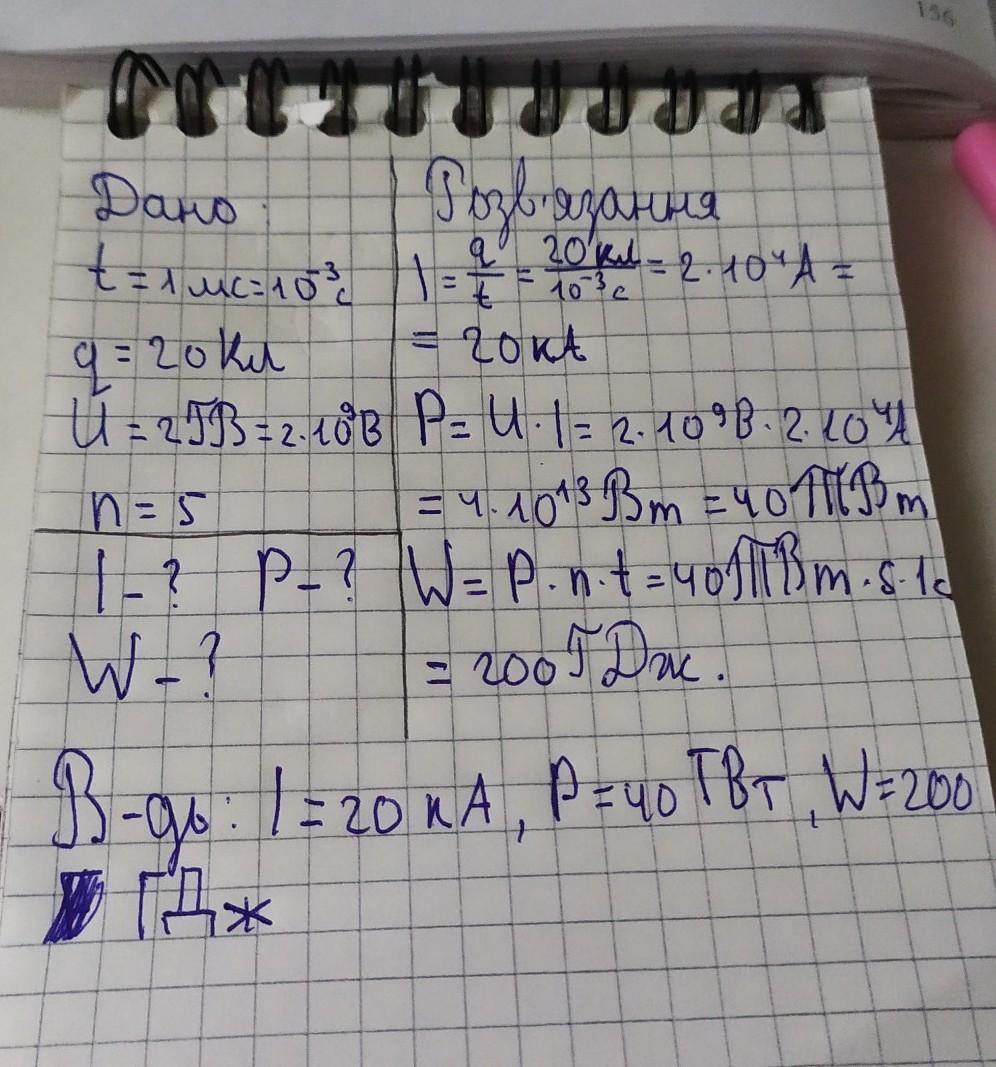 156
Дано:
t = 1 мс = 10⁻³ с
q = 20 Кл
U = 2 ГВ = 2·10⁹ В
n = 5
I - ? P - ?
W - ?
Розв'язання
I = q/t = 20 Кл/10⁻³ с = 2·10⁴ А =
= 20 кА
P = U·I = 2·10⁹ В·2·10⁴ А
= 4·10¹³ Вт = 40 ТВт
W = P·n·t = 40 ТВт·5·1с
= 200 ГДж.
В-дь: I = 20 кА, P = 40 ТВт, W = 200
ГДж